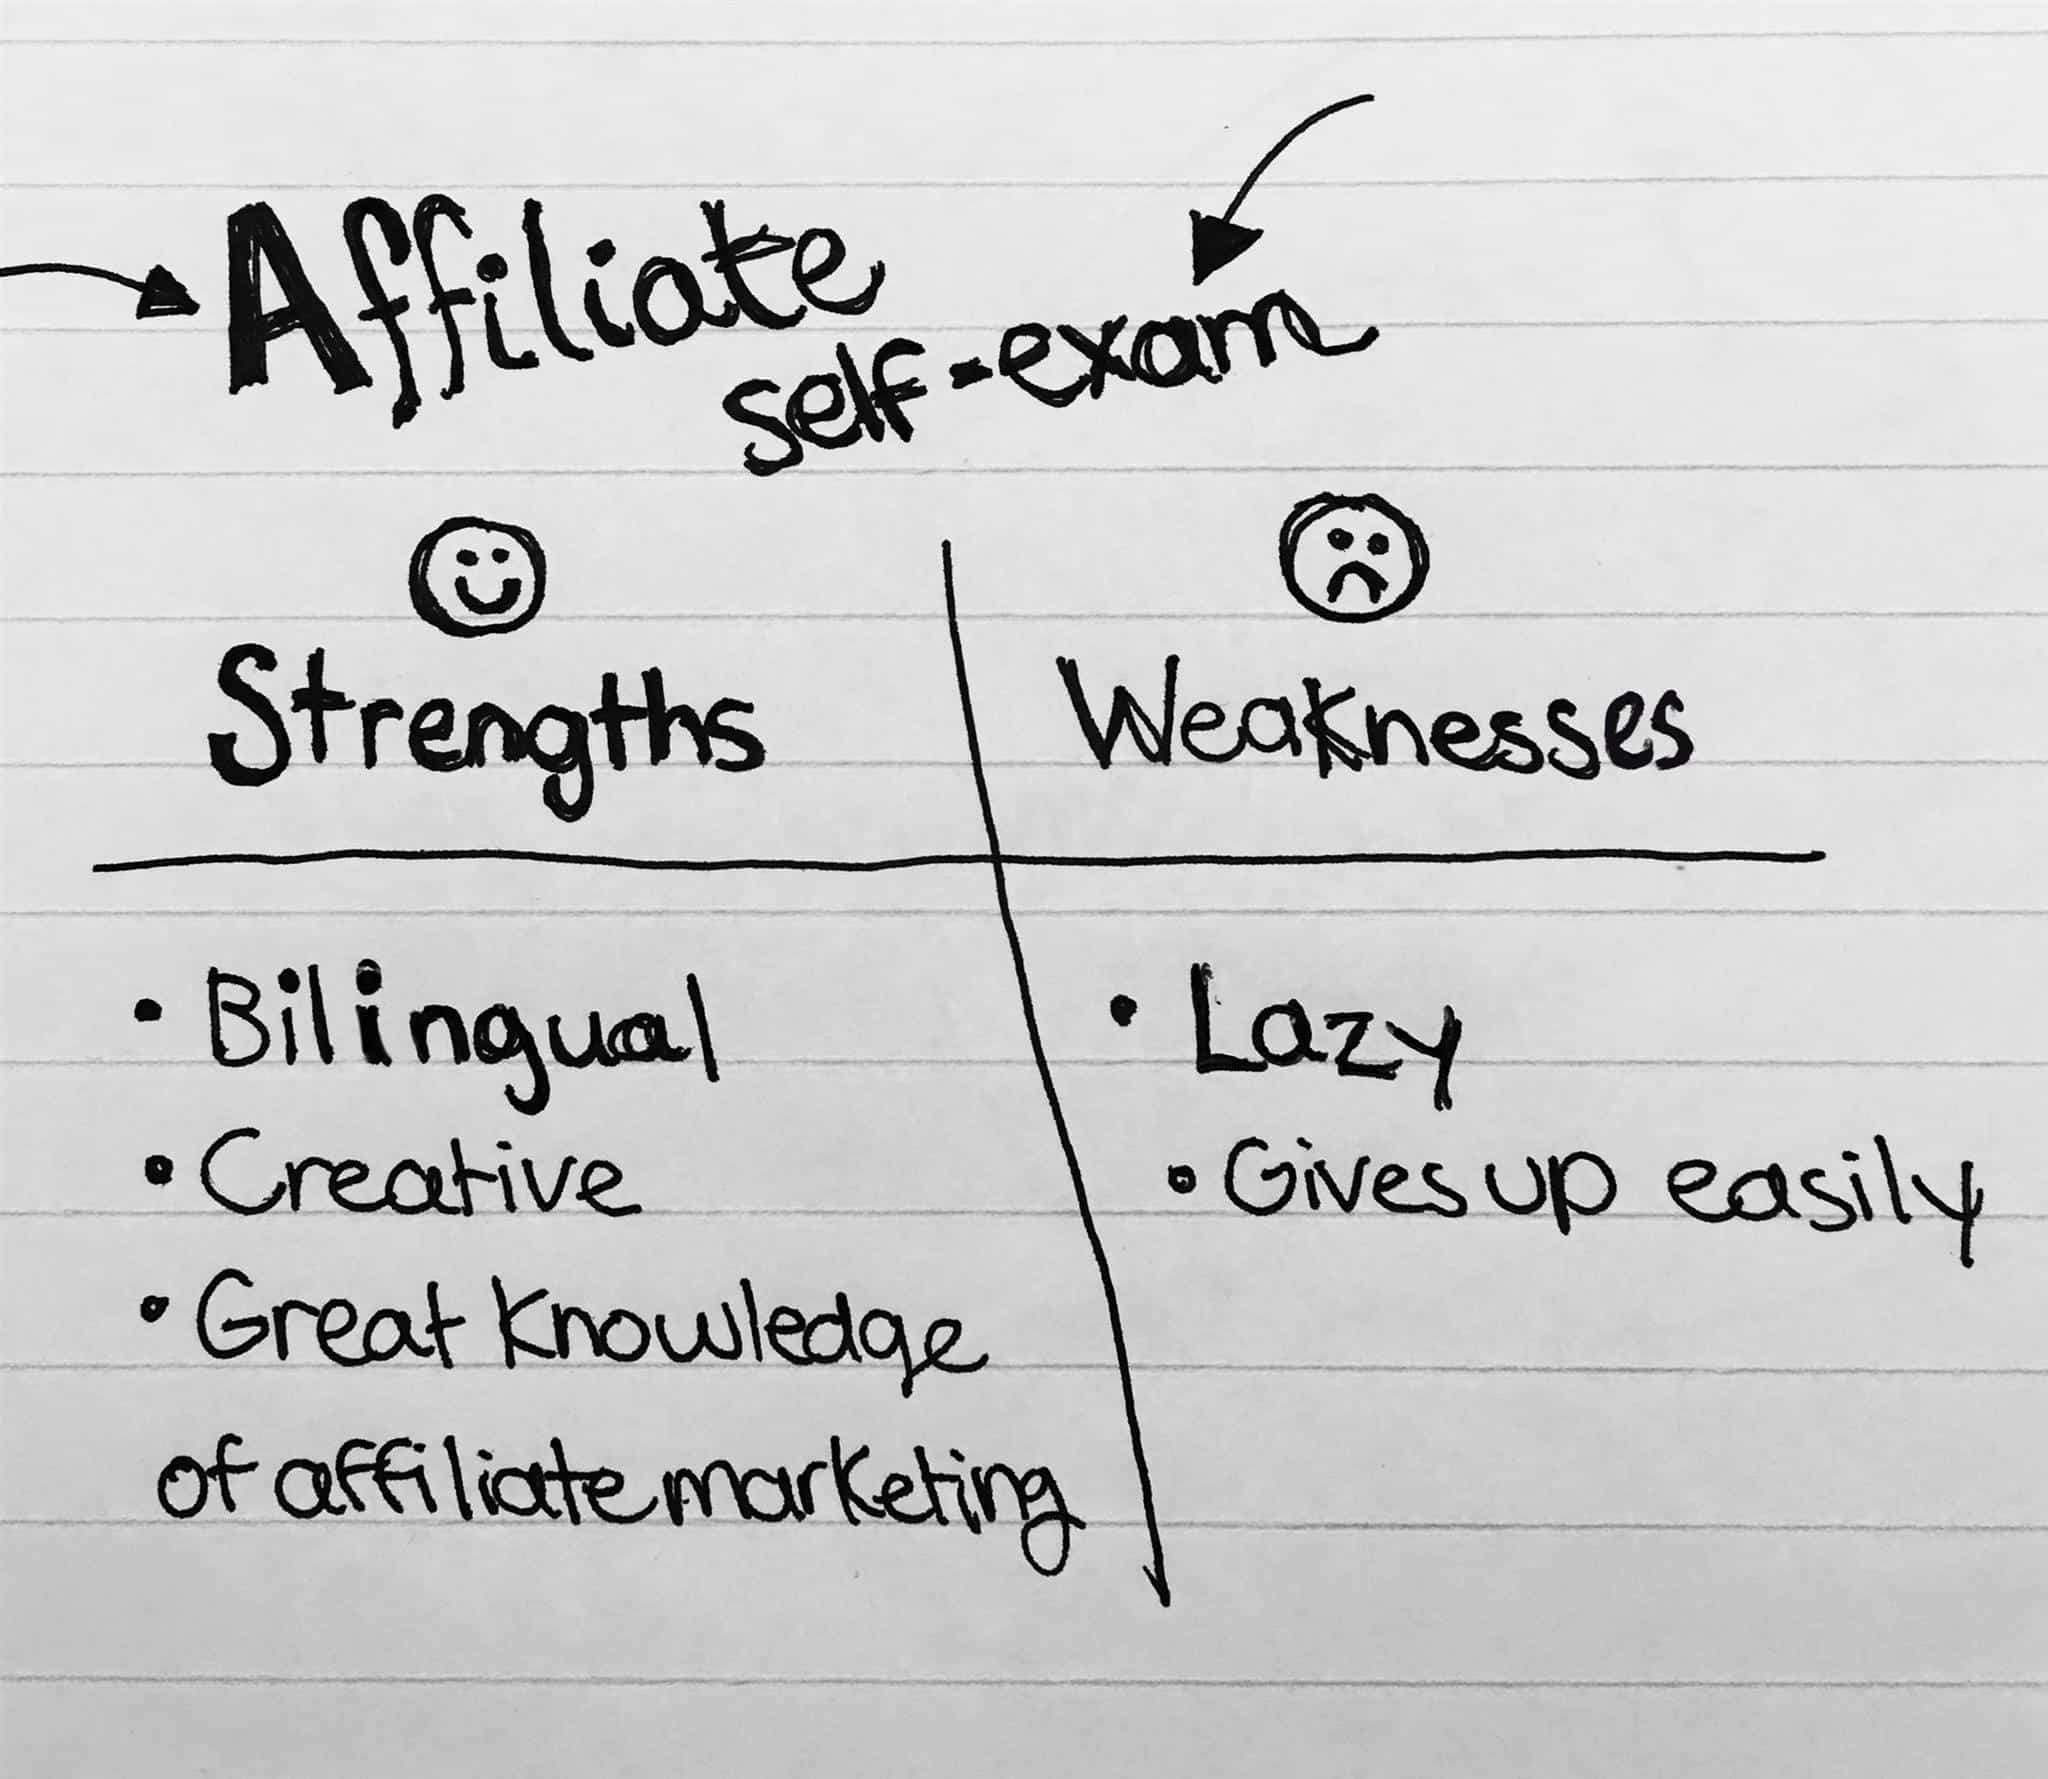 Affiliate
self-exam
Strengths
Weaknesses
• Bilingual
• Creative
• Great Knowledge
of affiliate marketing
• Lazy
• Gives up easily